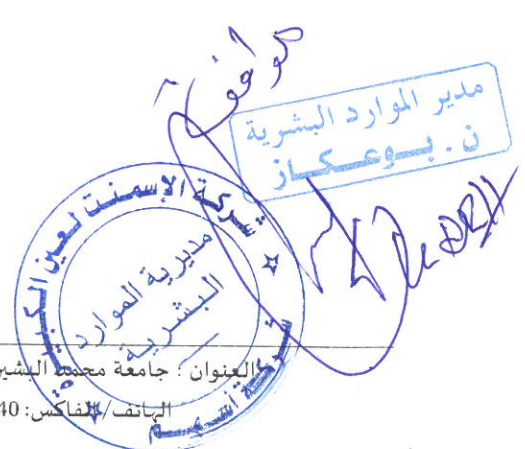 موافقة
مدير الموارد البشرية
ن . بـوعـكـاز
شركة الإسمنت لعين الكبيرة
مديرية الموارد
البشرية
شركة أسهم
العنوان : جامعة محمد البشير
الهاتف/الفاكس: 40